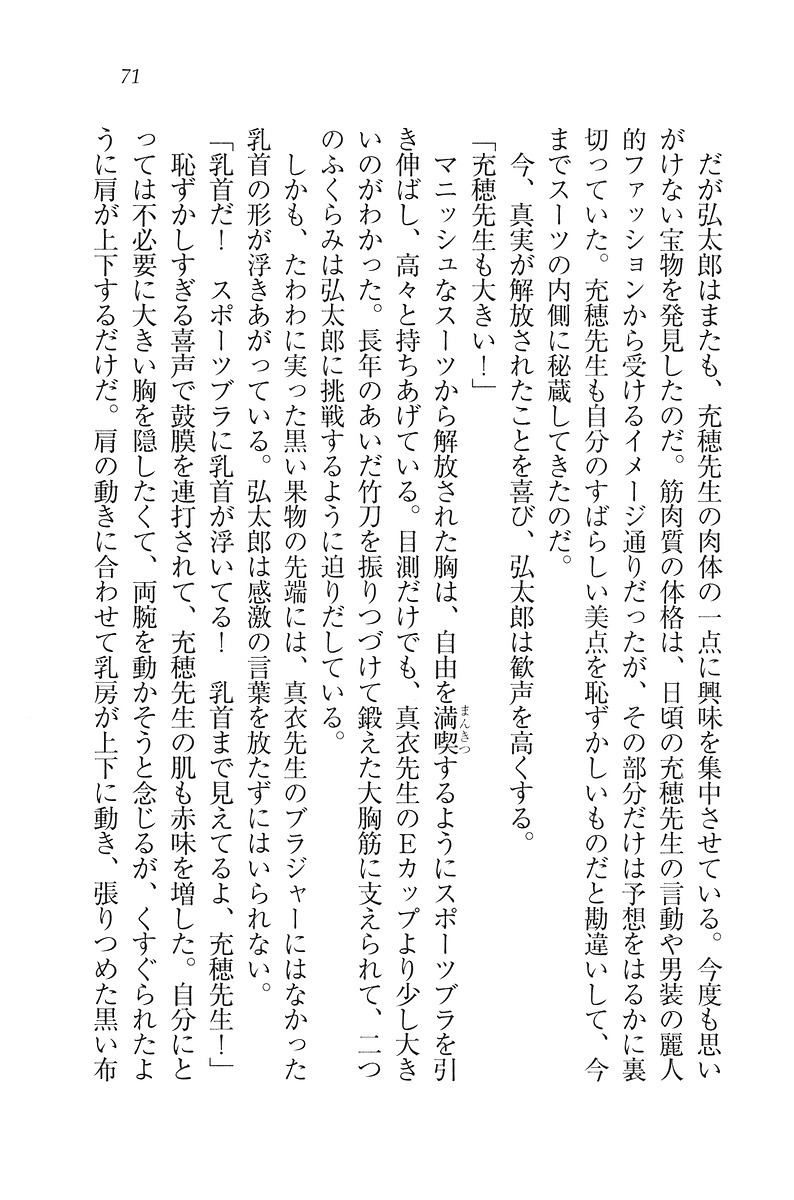 71
だが弘太郎はまたも、充穂先生の肉体の一点に興味を集中させている。今度も思い
がけない宝物を発見したのだ。筋肉質の体格は、日頃の充穂先生の言動や男装の麗人
的ファッションから受けるイメージ通りだったが、その部分だけは予想をはるかに裏
切っていた。充穂先生も自分のすばらしい美点を恥ずかしいものだと勘違いして、今
までスーツの内側に秘蔵してきたのだ。
今、真実が解放されたことを喜び、弘太郎は歓声を高くする。
「充穂先生も大きい！」
マニッシュなスーツから解放された胸は、自由を満喫するようにスポーツブラを引
まんきつ
き伸ばし、高々と持ちあげている。目測だけでも、真衣先生のＥカップより少し大き
いのがわかった。長年のあいだ竹刀を振りつづけて鍛えた大胸筋に支えられて、二つ
のふくらみは弘太郎に挑戦するように迫りだしている。
しかも、たわわに実った黒い果物の先端には、真衣先生のブラジャーにはなかった
乳首の形が浮きあがっている。弘太郎は感激の言葉を放たずにはいられない。
「乳首だ！　スポーツブラに乳首が浮いてる！　乳首まで見えてるよ、充穂先生！」
恥ずかしすぎる喜声で鼓膜を連打されて、充穂先生の肌も赤味を増した。自分にと
っては不必要に大きい胸を隠したくて、両腕を動かそうと念じるが、くすぐられたよ
うに肩が上下するだけだ。肩の動きに合わせて乳房が上下に動き、張りつめた黒い布